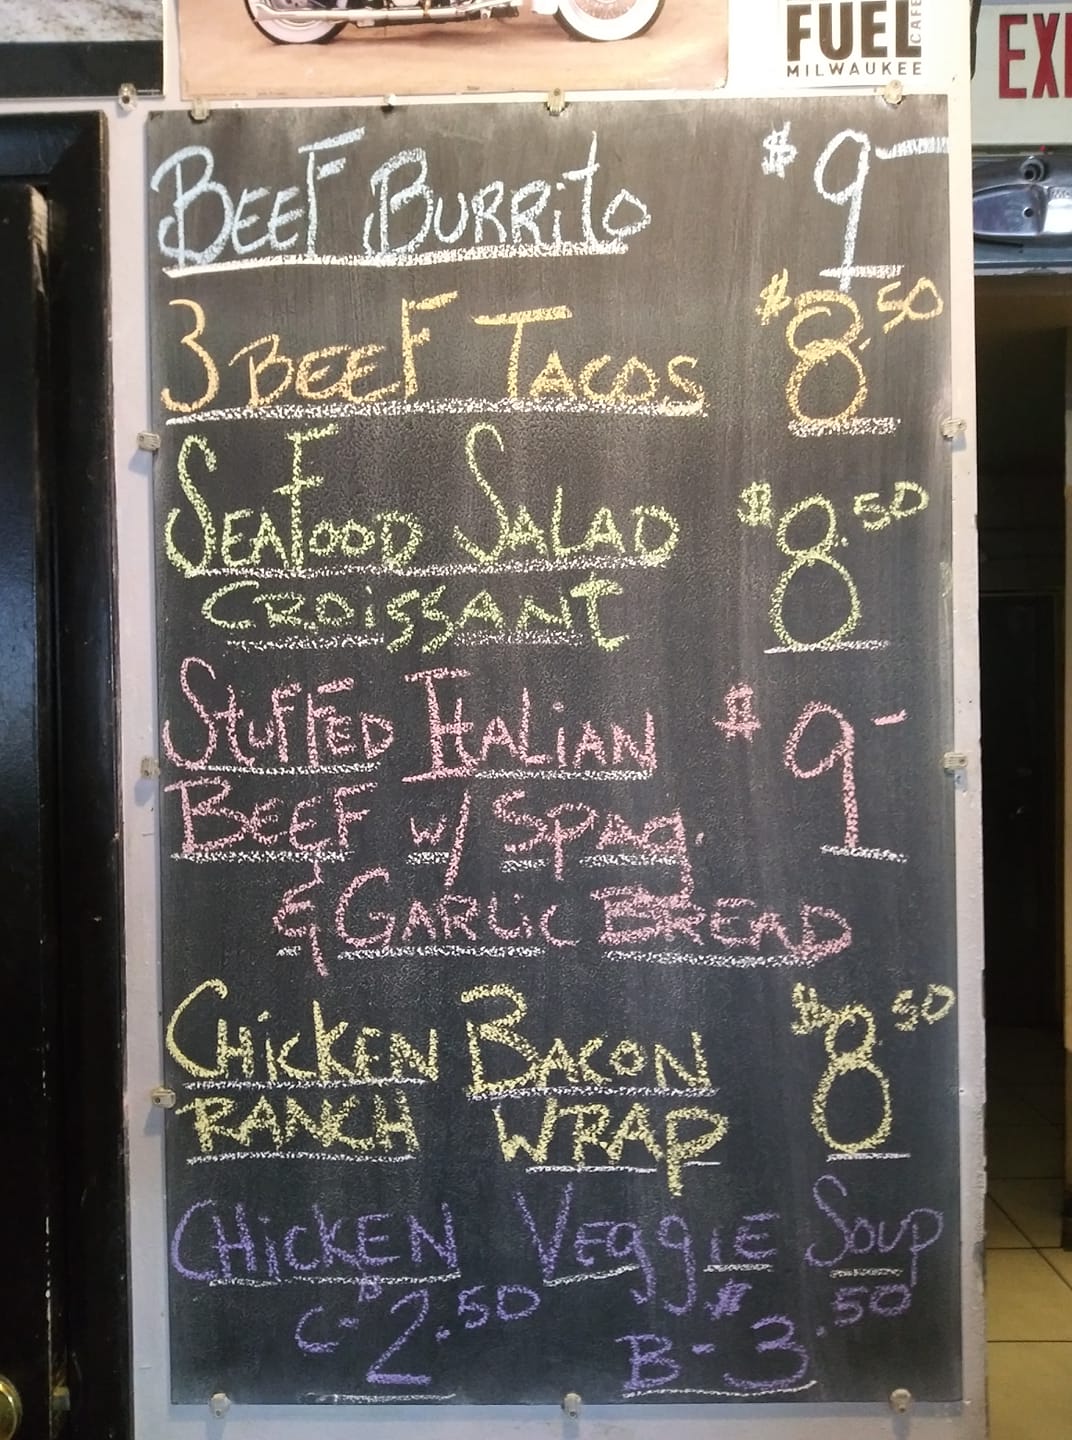 FUEL CAFE
MILWAUKEE
BEEF BURRITO $9-
3 BEEF TACOS $8.50
SEAFOOD SALAD $8.50
CROISSANT
STUFFED ITALIAN $9-
BEEF w/ Spag.
& GARLIC BREAD
CHICKEN BACON $8.50
RANCH WRAP
CHICKEN VEGGIE SOUP
C- $2.50 B- $3.50